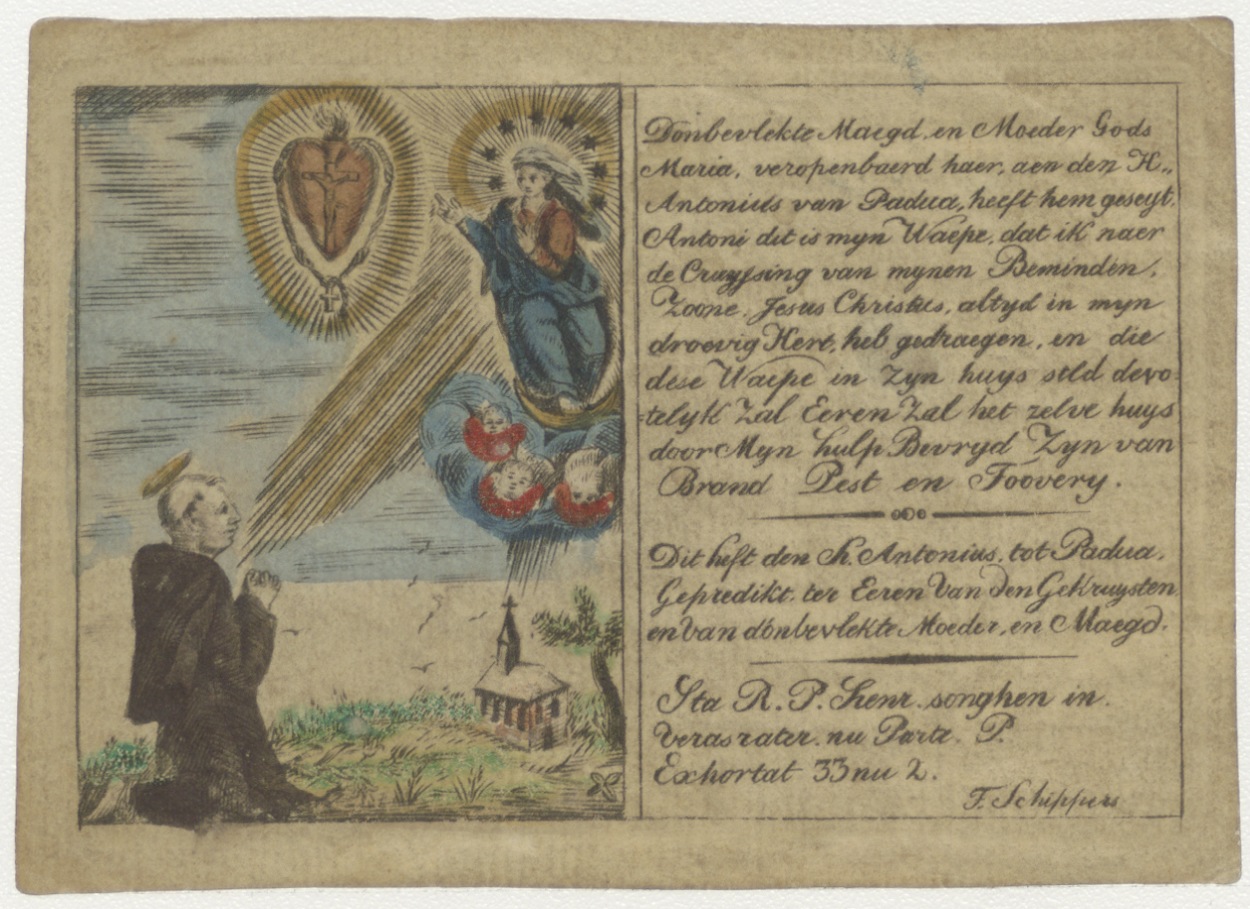 Donbevlekte Maegd, en Moeder Gods
Maria, veropenbaerd haer, aen den H„
Antonius van Padua, heeft hem geseyt,
Antoni dit is myn Waepe, dat ik naer
de Cruyssing van mynen Beminden,
Zoone, Jesus Christus, altyd in myn
droevig Hert, heb gedraegen, en die
dese Waepe in Zyn huys stld devo-
=telyk Zal Eeren Zal het zelve huys
door Myn hulp Bevryd Zyn van
Brand Pest en Toovery.
Dit heft den h. Antonius, tot Padua,
Gepredikt, ter Eeren Van den Gekruysten
en Van donbevlekte Moeder, en Maegd.
Sta R. P. Henr. songhen in
Verasrater. nu Parte. P.
Exhortat 33 nu 2.
F. Schippers